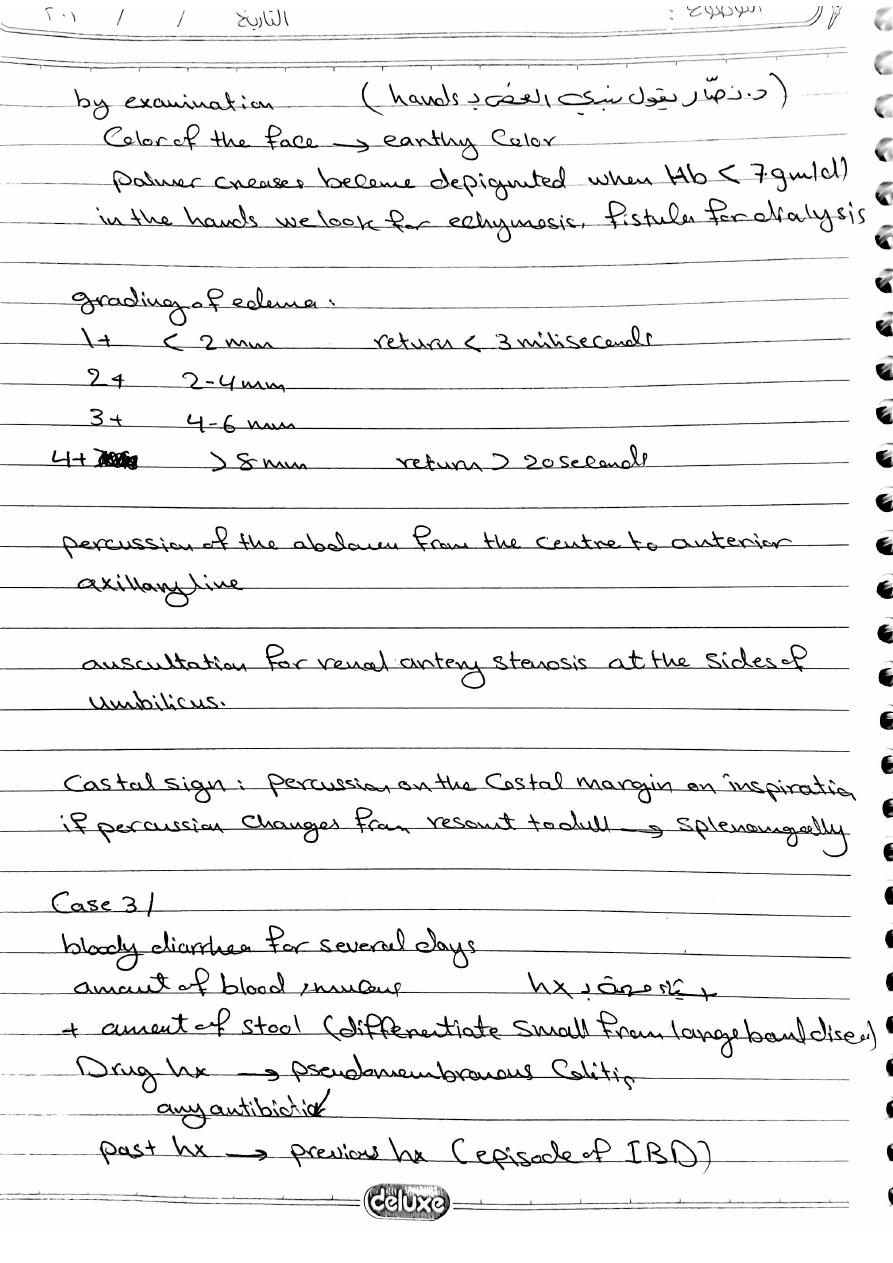 التاريخ / / ٢٠١
الموضوع :
by examination (د. نصّار يقول نبدي الفحص بـ hands)
Color of the face → earthy Color
palmer creases become depignted when Hb < 7 gm/dl)
in the hands we look for echymosis, fistula for dialysis
grading of edema :
1+ < 2 mm return < 3 miliseconds
2+ 2-4 mm
3+ 4-6 mm
4+ > 8 mm return > 20 seconds
percussion of the abdomen from the centre to anterior
axillary line
auscultation for renal artery stenosis at the sides of
umbilicus.
Castal sign : percussion on the Costal margin on inspiratio
if percussion changes from resonnt to dull → splenomgally
Case 3/
bloody diarrhea for several days
amount of blood, mucous hx
+ amount of stool (differentiate small from large bowl disea)
Drug hx → pseudomembranous Colitis
any antibiotic
past hx → previous hx (episode of IBD)
deluxe